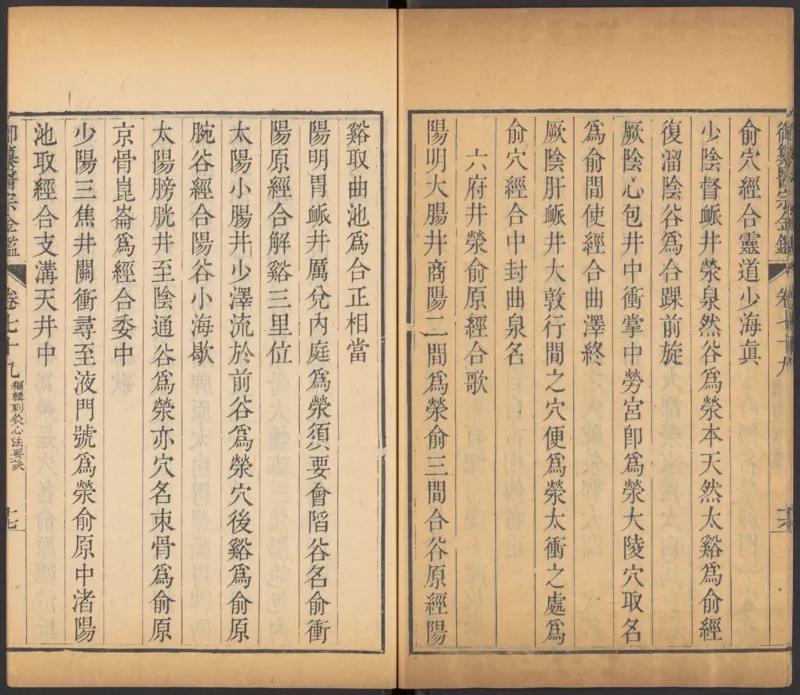 御纂醫宗金鑑
卷七十九
俞穴經合靈道少海真
少陰督脈井滎泉然谷為滎本天然太谿為俞經
復溜陰谷為合踝前旋
厥陰心包井中衝掌中勞宮卽為滎大陵穴取名
為俞間使經合曲澤終
厥陰肝脈井大敦行間之穴便為滎太衝之處為
俞穴經合中封曲泉名
六府井滎俞原經合歌
陽明大腸井商陽二間為滎俞三間合谷原經陽
谿取曲池為合正相當
陽明胃脈井厲兌內庭為滎須要會陷谷名俞衝
陽原經合解谿三里位
太陽小腸井少澤流於前谷為滎穴後谿為俞原
腕谷經合陽谷小海歇
太陽膀胱井至陰通谷為滎亦穴名束骨為俞原
京骨崑崙為經合委中
少陽三焦井關衝尋至液門號為滎俞原中渚陽
池取經合支溝天井中
御纂醫宗金鑑
卷七十九
編輯刺灸心法要訣
十七